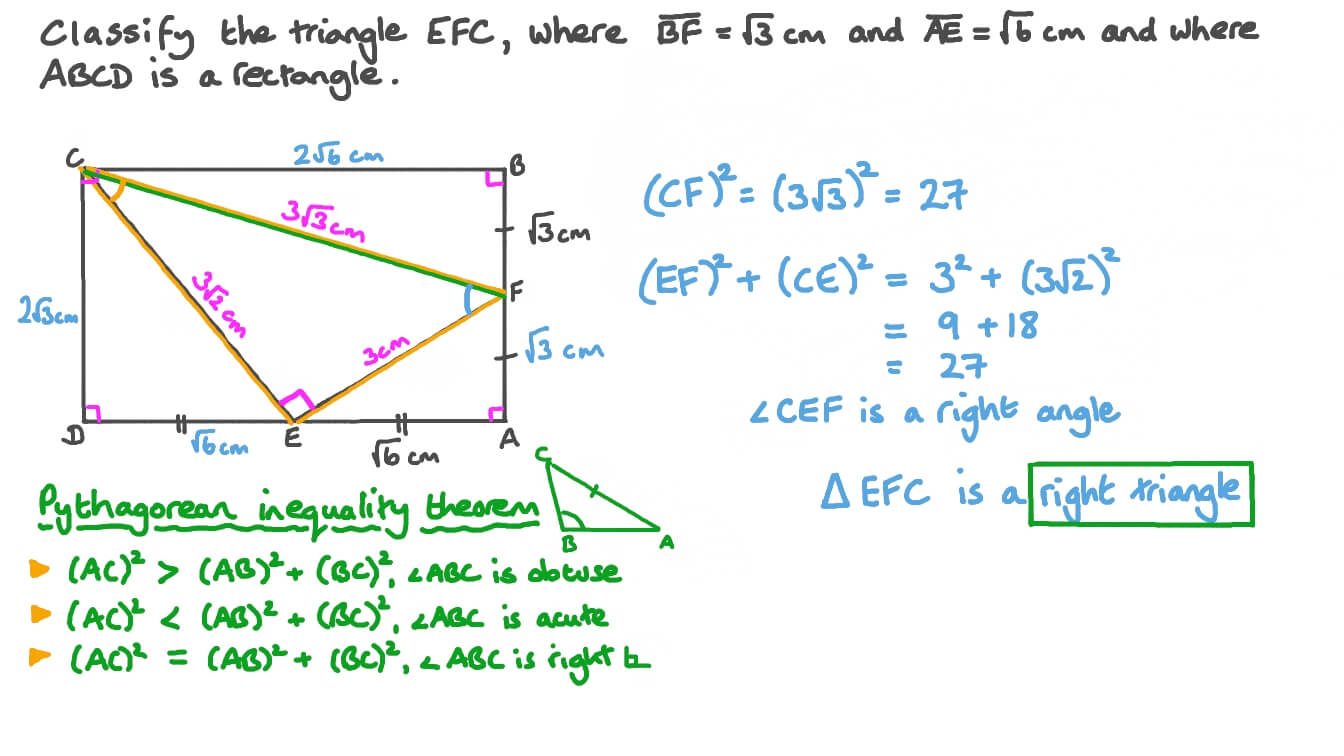 Classify the triangle EFC, where B̅F̅ = √3 cm and A̅E̅ = √6 cm and where
ABCD is a rectangle.
C
2√6 cm
B
3√3 cm
√3 cm
(CF)² = (3√3)² = 27
3√2 cm
F
(EF)² + (CE)² = 3² + (3√2)²
2√3 cm
3 cm
√3 cm
= 9 + 18
= 27
D
√6 cm
E
√6 cm
A
∠CEF is a right angle
△ EFC is a right triangle
Pythagorean inequality theorem
C
B
A
(AC)² > (AB)² + (BC)², ∠ABC is obtuse
(AC)² < (AB)² + (BC)², ∠ABC is acute
(AC)² = (AB)² + (BC)², ∠ABC is right